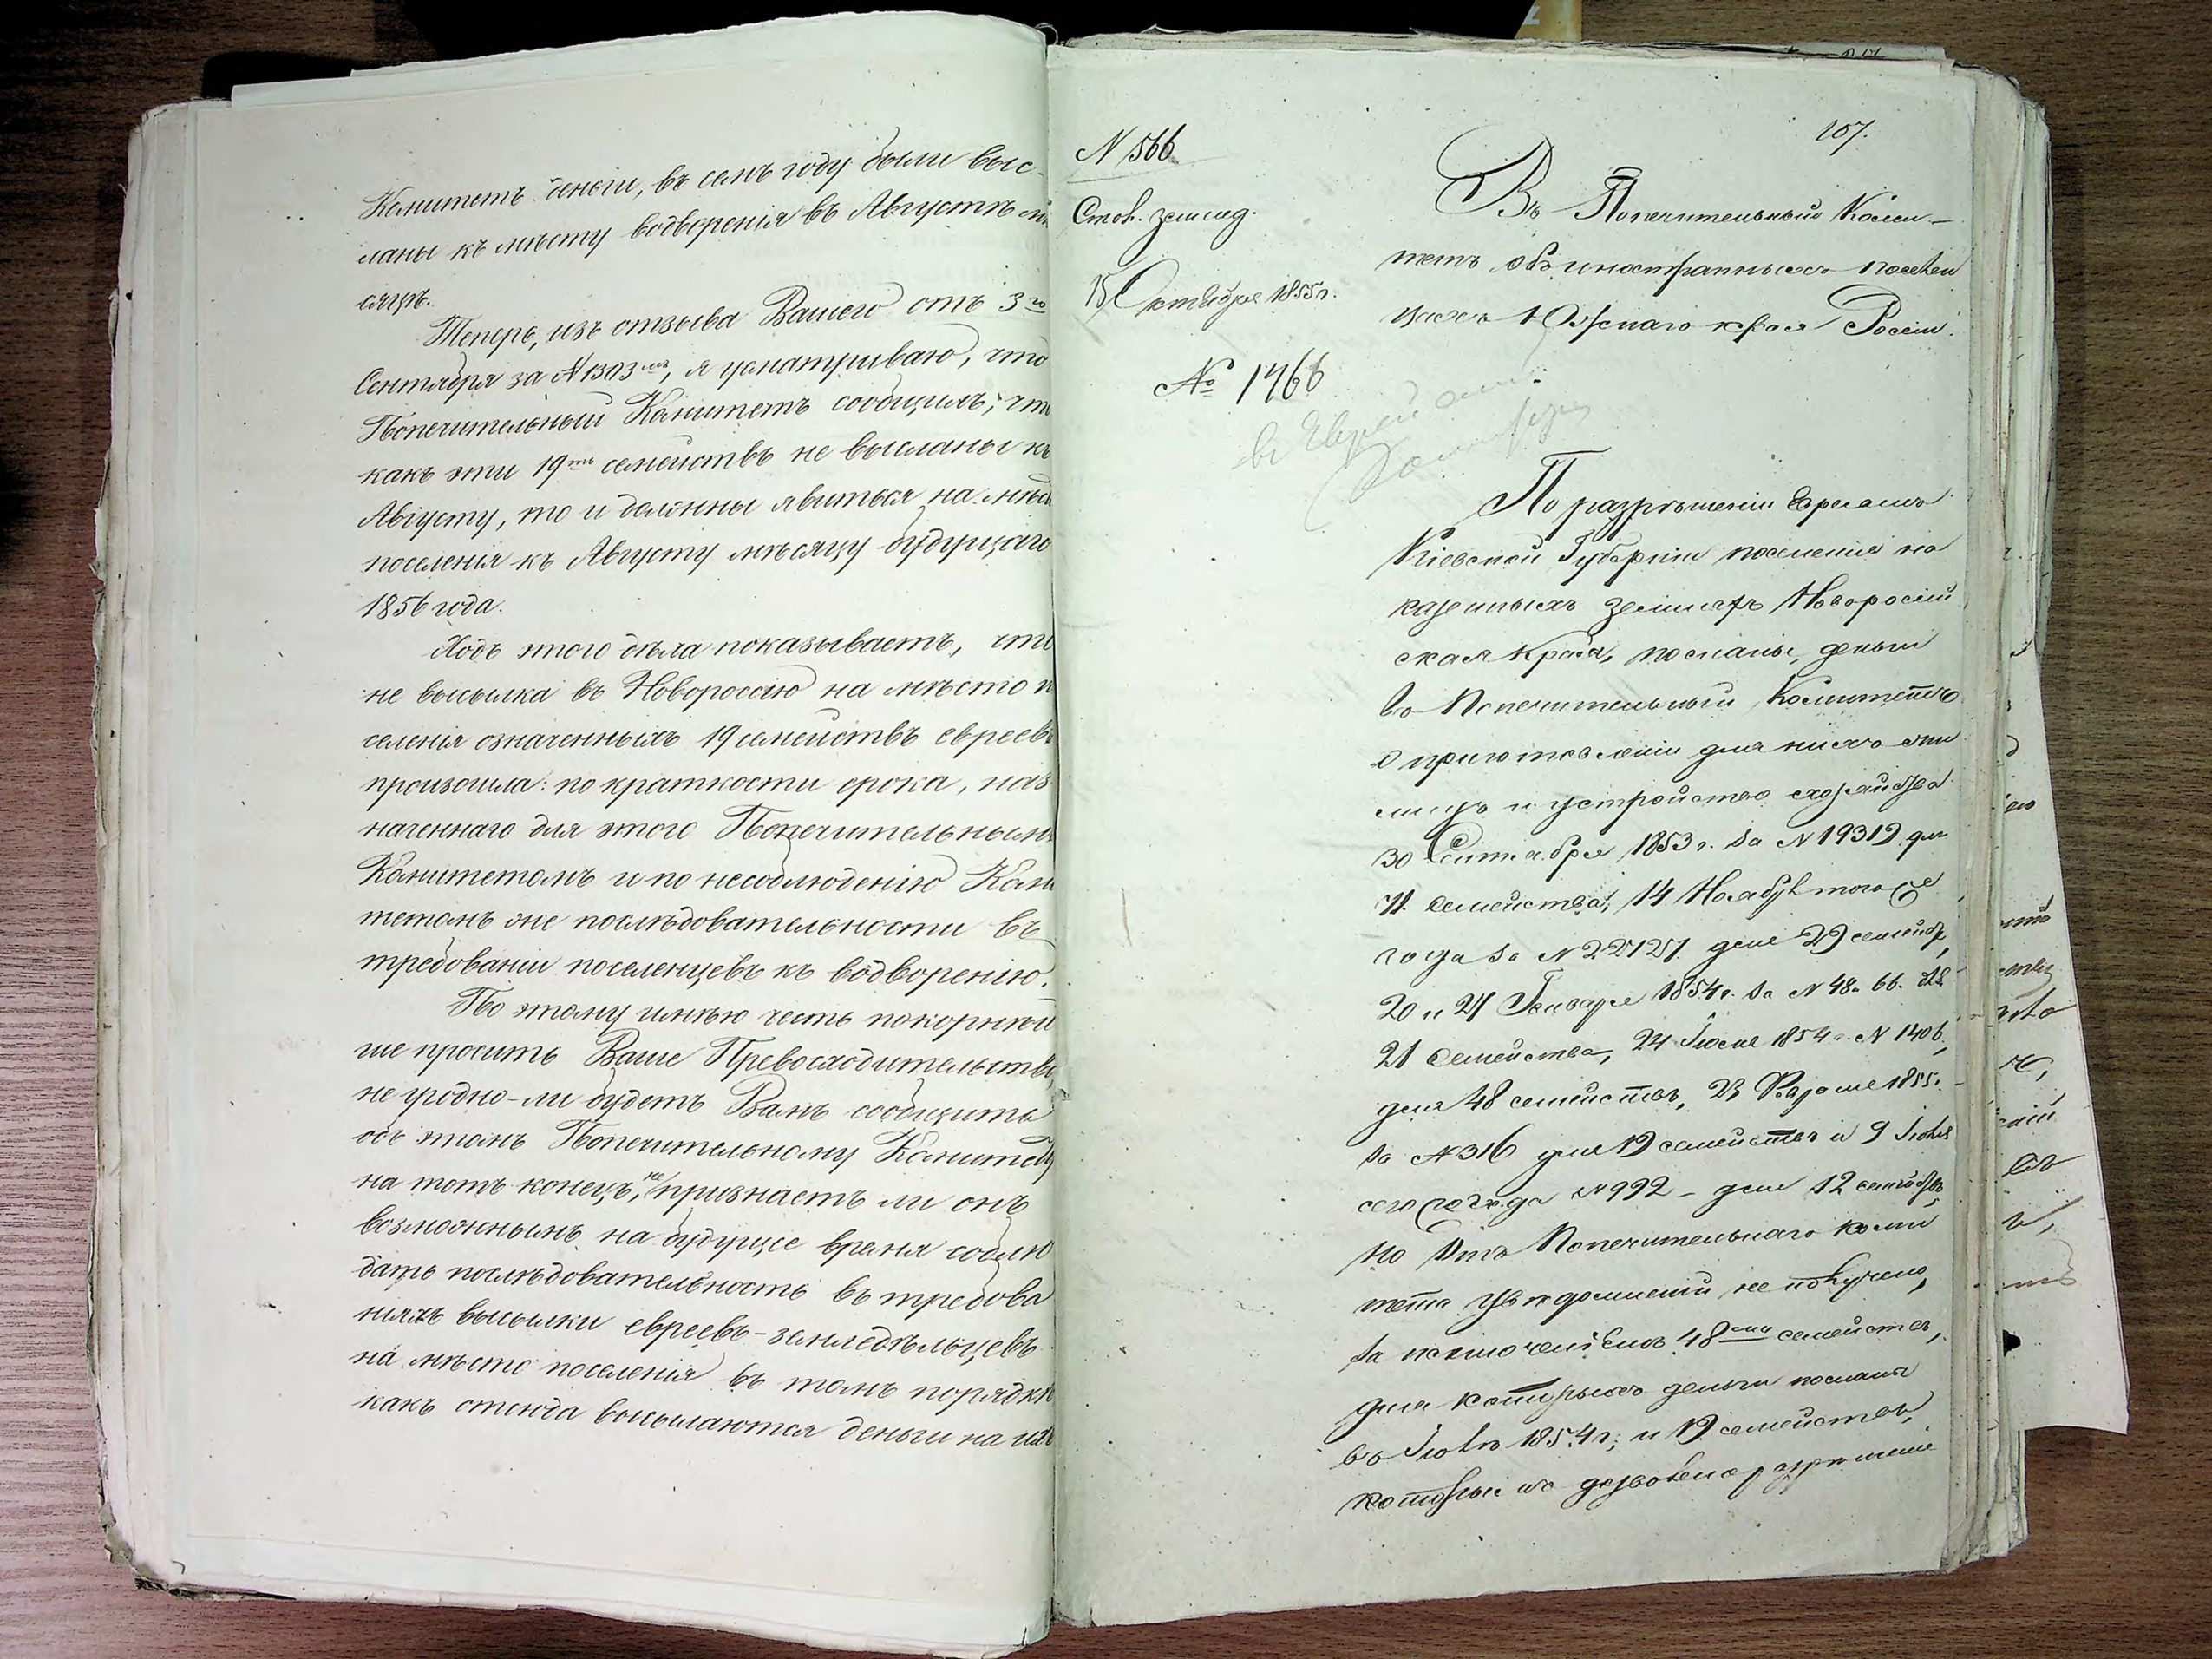 Комитетъ деньги, въ семъ году были выс-
ланы къ мѣсту водворенія въ Августѣ мѣ
сяцѣ.
Теперь, изъ отзыва Вашего отъ 3го
Сентября за №1303мъ, я усматриваю, что
Попечительный Комитетъ сообщилъ, что
какъ эти 19ть семействъ не высланы къ
Августу, то и должны явиться на мѣсто
поселенія къ Августу мѣсяцу будущаго
1856 года.
Ходъ этого дѣла показываетъ, что
не высылка въ Новороссію на мѣсто п
селенія означенныхъ 19 семействъ евреевъ
произошла: по краткости срока, наз
наченнаго для этого Попечительнымъ
Комитетомъ и по несоблюденію Коми
тетомъ же послѣдовательности въ
требованіи поселенцевъ къ водворенію.
По этому имѣю честь покорнѣй
ше просить Ваше Превосходительство,
не угодно-ли будетъ Вамъ сообщить
объ этомъ Попечительному Комитету
на тотъ конецъ, не признаетъ ли онъ
возможнымъ на будущее время соблю
дать послѣдовательность въ требова
ніяхъ высылки евреевъ-земледѣльцевъ
на мѣсто поселенія въ томъ порядкѣ
какъ отсюда высылаются деньги на ихъ
N 566
Стол. землед.
15 Октября 1855 г.
№ 1466
107.
Въ Попечительный Коми-
тетъ объ иностранныхъ поселен
цахъ Южнаго края Россіи.
въ Еврей
По разрѣшеніи Евреямъ
Кіевской Губерніи поселенія на
казенныхъ земляхъ Новороссій
скаго края, посланы деньги
въ Попечительный Комитетъ
о приготовленіи для нихъ жи
лищъ и устройство хозяйства
30 Сентября 1853 г. за N 19312 для
71 семейства, 14 Ноября того же
года за N 22121 для 29 семействъ,
20 и 21 Января 1854 г. за N 48 и 66. для
21 семейства, 24 Іюля 1854 г. N 1406,
для 48 семействъ, 23 1855 г.
за №316 для 19 семействъ и 9 Іюля
сего года №992 - для 12 семействъ,
но отъ Попечительнаго коми
тета увѣдомленій не получено,
за исключеніемъ 48ми семействъ,
для которыхъ деньги посланы
въ Іюлѣ 1854 г; и 19 семействъ,
которымъ дозволено разрѣшеніе